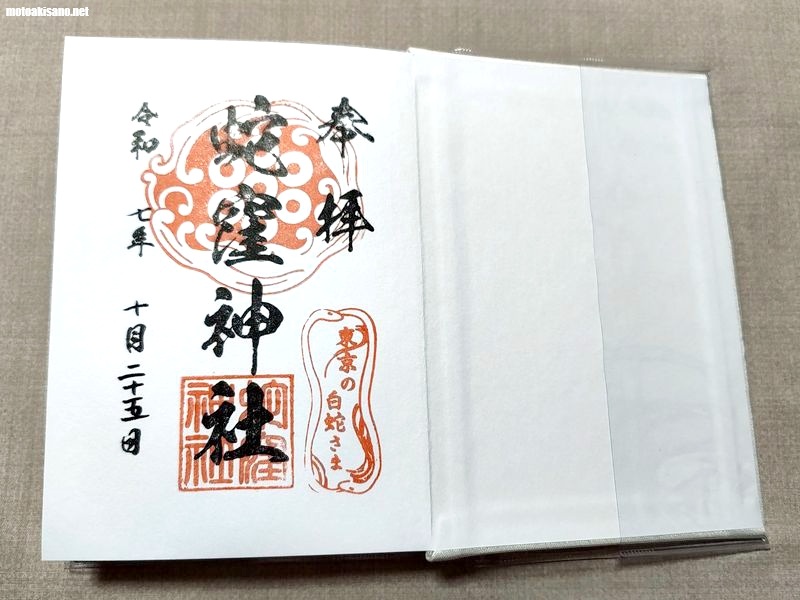 motoakisano.net
奉拝
蛇窪神社
令和 七年 十月 二十五日
東京の
白蛇さま
蛇窪
神社